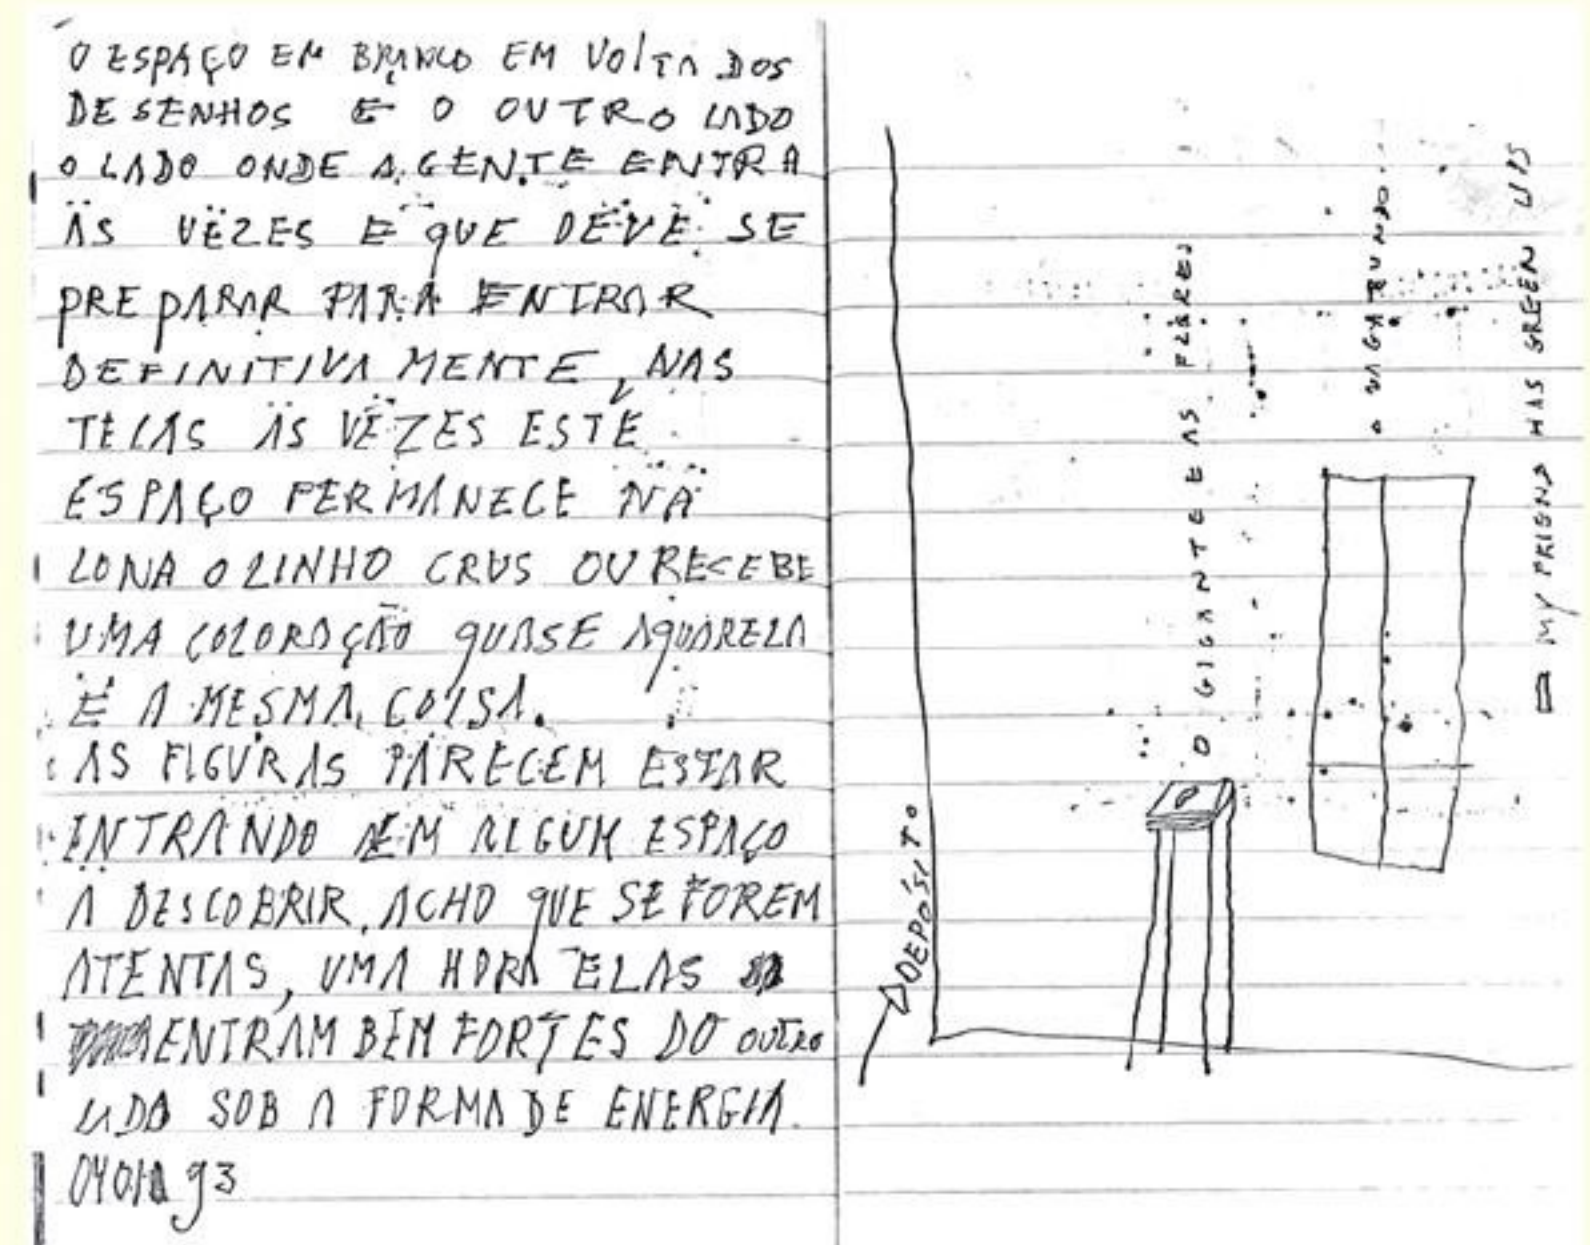 O ESPAÇO EM BRANCO EM VOLTA DOS
DESENHOS E O OUTRO LADO
O LADO ONDE A GENTE ENTRA
ÀS VEZES E QUE DEVE SE
PREPARAR PARA ENTRAR
DEFINITIVAMENTE, NAS
TELAS ÀS VEZES ESTE
ESPAÇO PERMANECE NA
LONA O LINHO CRUS OU RECEBE
UMA COLORAÇÃO QUASE AQUARELA
E A MESMA COISA.
AS FIGURAS PARECEM ESTAR
ENTRANDO EM ALGUM ESPAÇO
A DESCOBRIR. ACHO QUE SE FOREM
ATENTAS, UMA HORA ELAS
ENTRAM BEM FORTES DO OUTRO
LADO SOB A FORMA DE ENERGIA.
93
DEPÓSITO
O GIGANTE E AS FLORES
O VAGABUNDO
MY FRIEND HAS GREEN